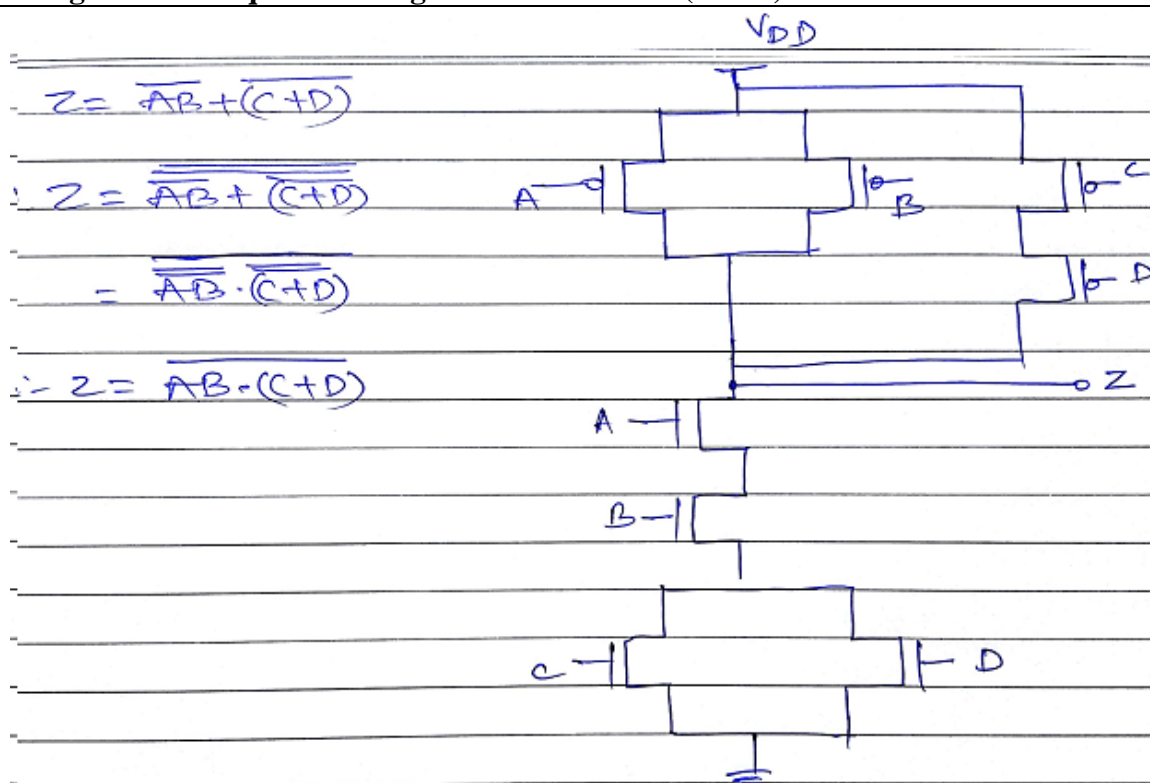 VDD
Z = \overline{AB} + \overline{(C+D)}
∴ Z = \overline{\overline{\overline{AB} + \overline{(C+D)}}}
= \overline{\overline{\overline{AB}} · \overline{\overline{(C+D)}}}
∴ Z = \overline{AB·(C+D)}
A
B
C
D
Z
A
B
C
D